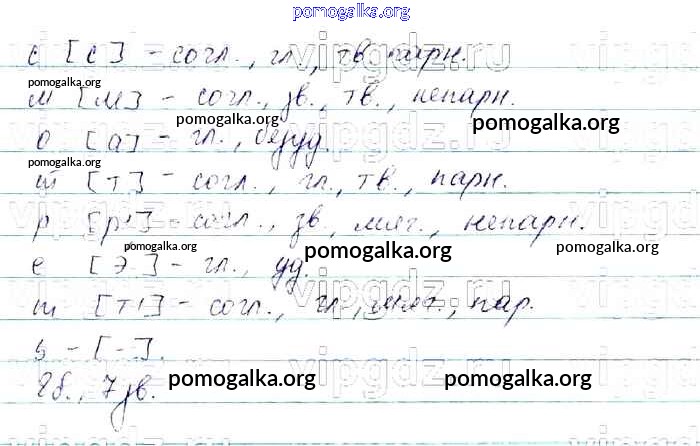 pomogalka.org
с [с] - согл., гл., тв. парн.
pomogalka.org
м [м] - согл., зв., тв., непарн.
pomogalka.org
pomogalka.org
о [а] - гл., безуд.
pomogalka.org
т [т] - согл., гл., тв., парн.
р [р'] - согл., зв, мяг., непарн.
pomogalka.org
pomogalka.org
pomogalka.org
е [э] - гл., уд.
т [т'] - согл., гл., мяг., пар.
ь - [-].
8б., 7зв.
pomogalka.org
pomogalka.org
vipgdz.ru